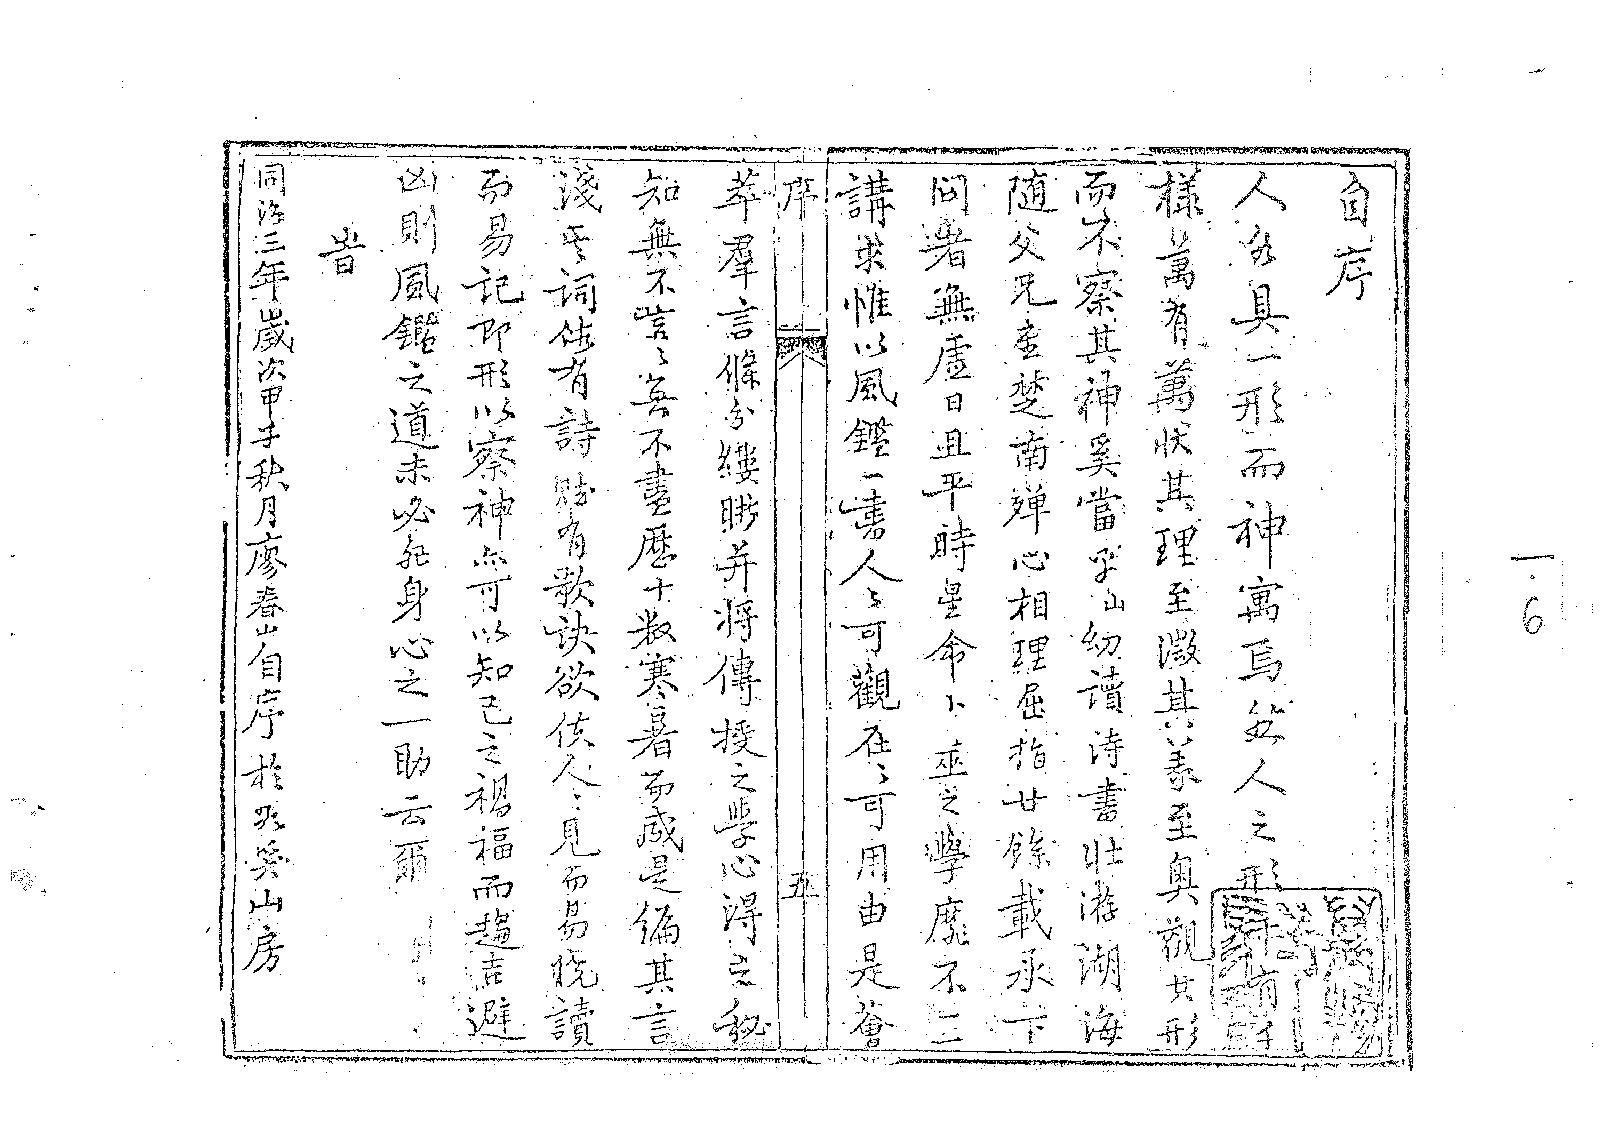 自序
人各具一形而神寓焉然人之形有千
樣萬有萬狀其理至微其義至奧觀其形
而不察其神奚當乎山幼讀诗書壮游湖海
随父兄至楚南殫心相理屈指廿餘載承下
问者無虚日且平時星命卜巫之學靡不一一
講求惟以風鑑一書人〻可觀在〻可用由是薈
序
五
萃羣言條分縷晰并将傳授之學心得之秘
知無不言〻無不盡歴十数寒暑而成是編其言
淺其詞俗有詩賦有歌訣欲使人〻見而易晓讀
而易記即形以察神亦可以知己之禍福而趨吉避
凶則風鑑之道未必非身心之一助云爾
旹
同治三年歲次甲子秋月廖春山自序於卧雲山房
一.6